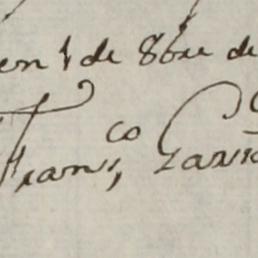 en 1 de 8bre de
Franco Garci